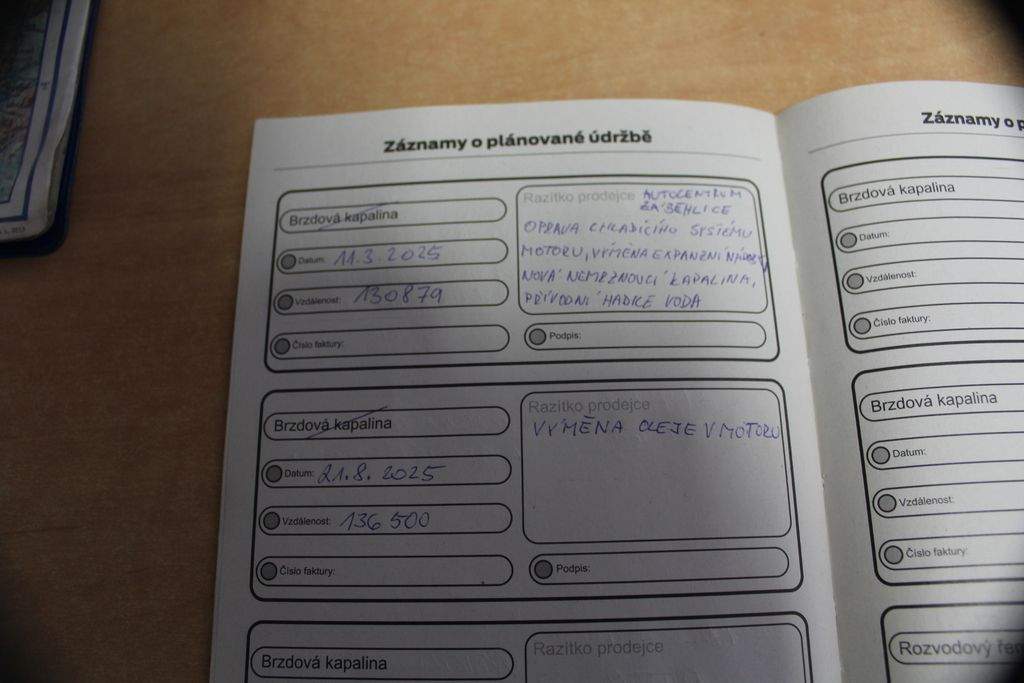 Záznamy o plánované údržbě
Brzdová kapalina
Datum: 11.3.2025
Vzdálenost: 130879
Číslo faktury:
Razítko prodejce AUTOCENTRUM
ZÁBĚHLICE
OPRAVA CHLADÍCÍHO SYSTÉMU
MOTORU, VÝMĚNA EXPANZNÍ NÁDOBY
NOVÁ NEMRZNOUCÍ KAPALINA,
PŘÍVODNÍ HADICE VODA
Podpis:
Brzdová kapalina
Datum: 21.8.2025
Vzdálenost: 136 500
Číslo faktury:
Razítko prodejce
VÝMĚNA OLEJE V MOTORU
Podpis:
Brzdová kapalina
Razítko prodejce
Záznamy o p
Brzdová kapalina
Datum:
Vzdálenost:
Číslo faktury:
Brzdová kapalina
Datum:
Vzdálenost:
Číslo faktury:
Rozvodový řem